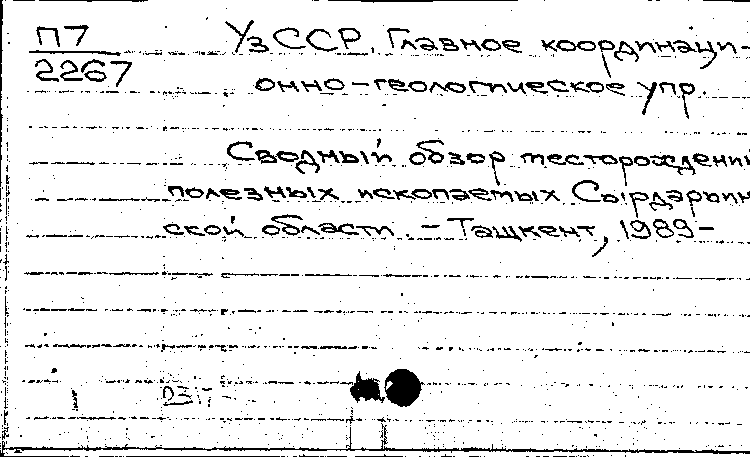 П7
2267
УзССР. Главное координаци-
онно-геологическое упр.
Сводный обзор месторождений
полезных ископаемых Сырдарьин
ской области. - Ташкент, 1989-
1